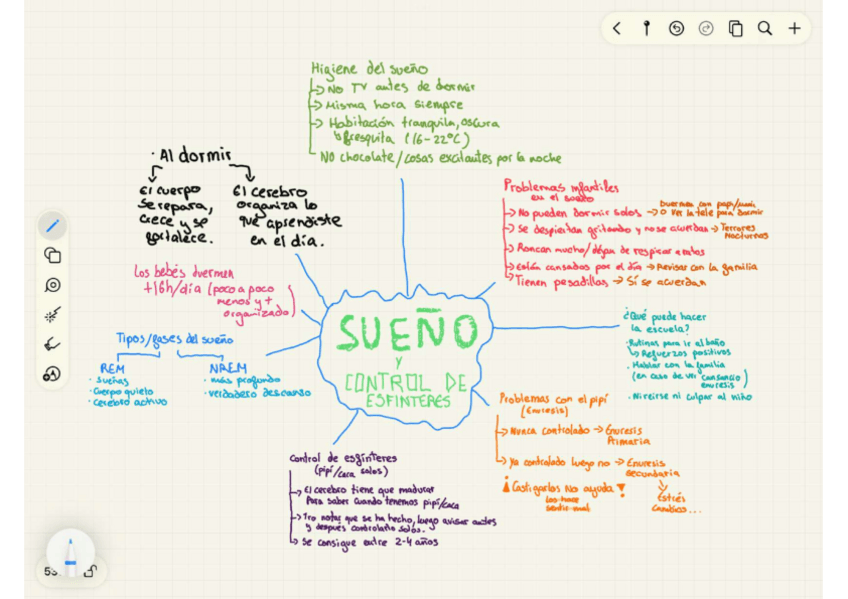 Higiene del sueño
→ No TV antes de dormir
→ Misma hora siempre
→ Habitación tranquila, oscura
↳ fresquita (16-22ºC)
NO chocolate/cosas excitantes por la noche
· Al dormir
El cuerpo
se repara,
crece y se
fortalece.
El cerebro
organiza lo
que aprendiste
en el día.
Los bebés duermen
+16h/día (poco a poco
menos y +
organizado)
Tipos/fases del sueño
REM
· sueñas
· Cuerpo quieto
· cerebro activo
NREM
· más profundo
· verdadero descanso
SUEÑO
Y
CONTROL DE
ESFINTERES
Problemas infantiles
en el sueño
→ No pueden dormir solos → Duermen con papi/mami
o ver la tele para dormir
→ Se despiertan gritando y no se acuerdan → Terrores
Nocturnos
→ Roncan mucho/dejan de respirar a ratos
→ Están cansados por el día → Revisar con la familia
→ Tienen pesadillas → Sí se acuerdan
¿Qué puede hacer
la escuela?
· Rutinas para ir al baño
↳ Refuerzos positivos
· Hablar con la familia
(en caso de ver cansancio/
enuresis)
· Ni reirse ni culpar al niño
Problemas con el pipí
(Enuresis)
→ Nunca controlado → Enuresis
Primaria
→ Ya controlado luego no → Enuresis
secundaria
Estrés
cambios...
¡Castigarlos No ayuda!
Los hace
sentir mal
Control de esfínteres
(pipí/caca solos)
→ El cerebro tiene que madurar
para saber cuando tenemos pipí/caca
→ 1ro notar que se ha hecho, luego avisar antes
y después controlarlo solos.
→ Se consigue entre 2-4 años